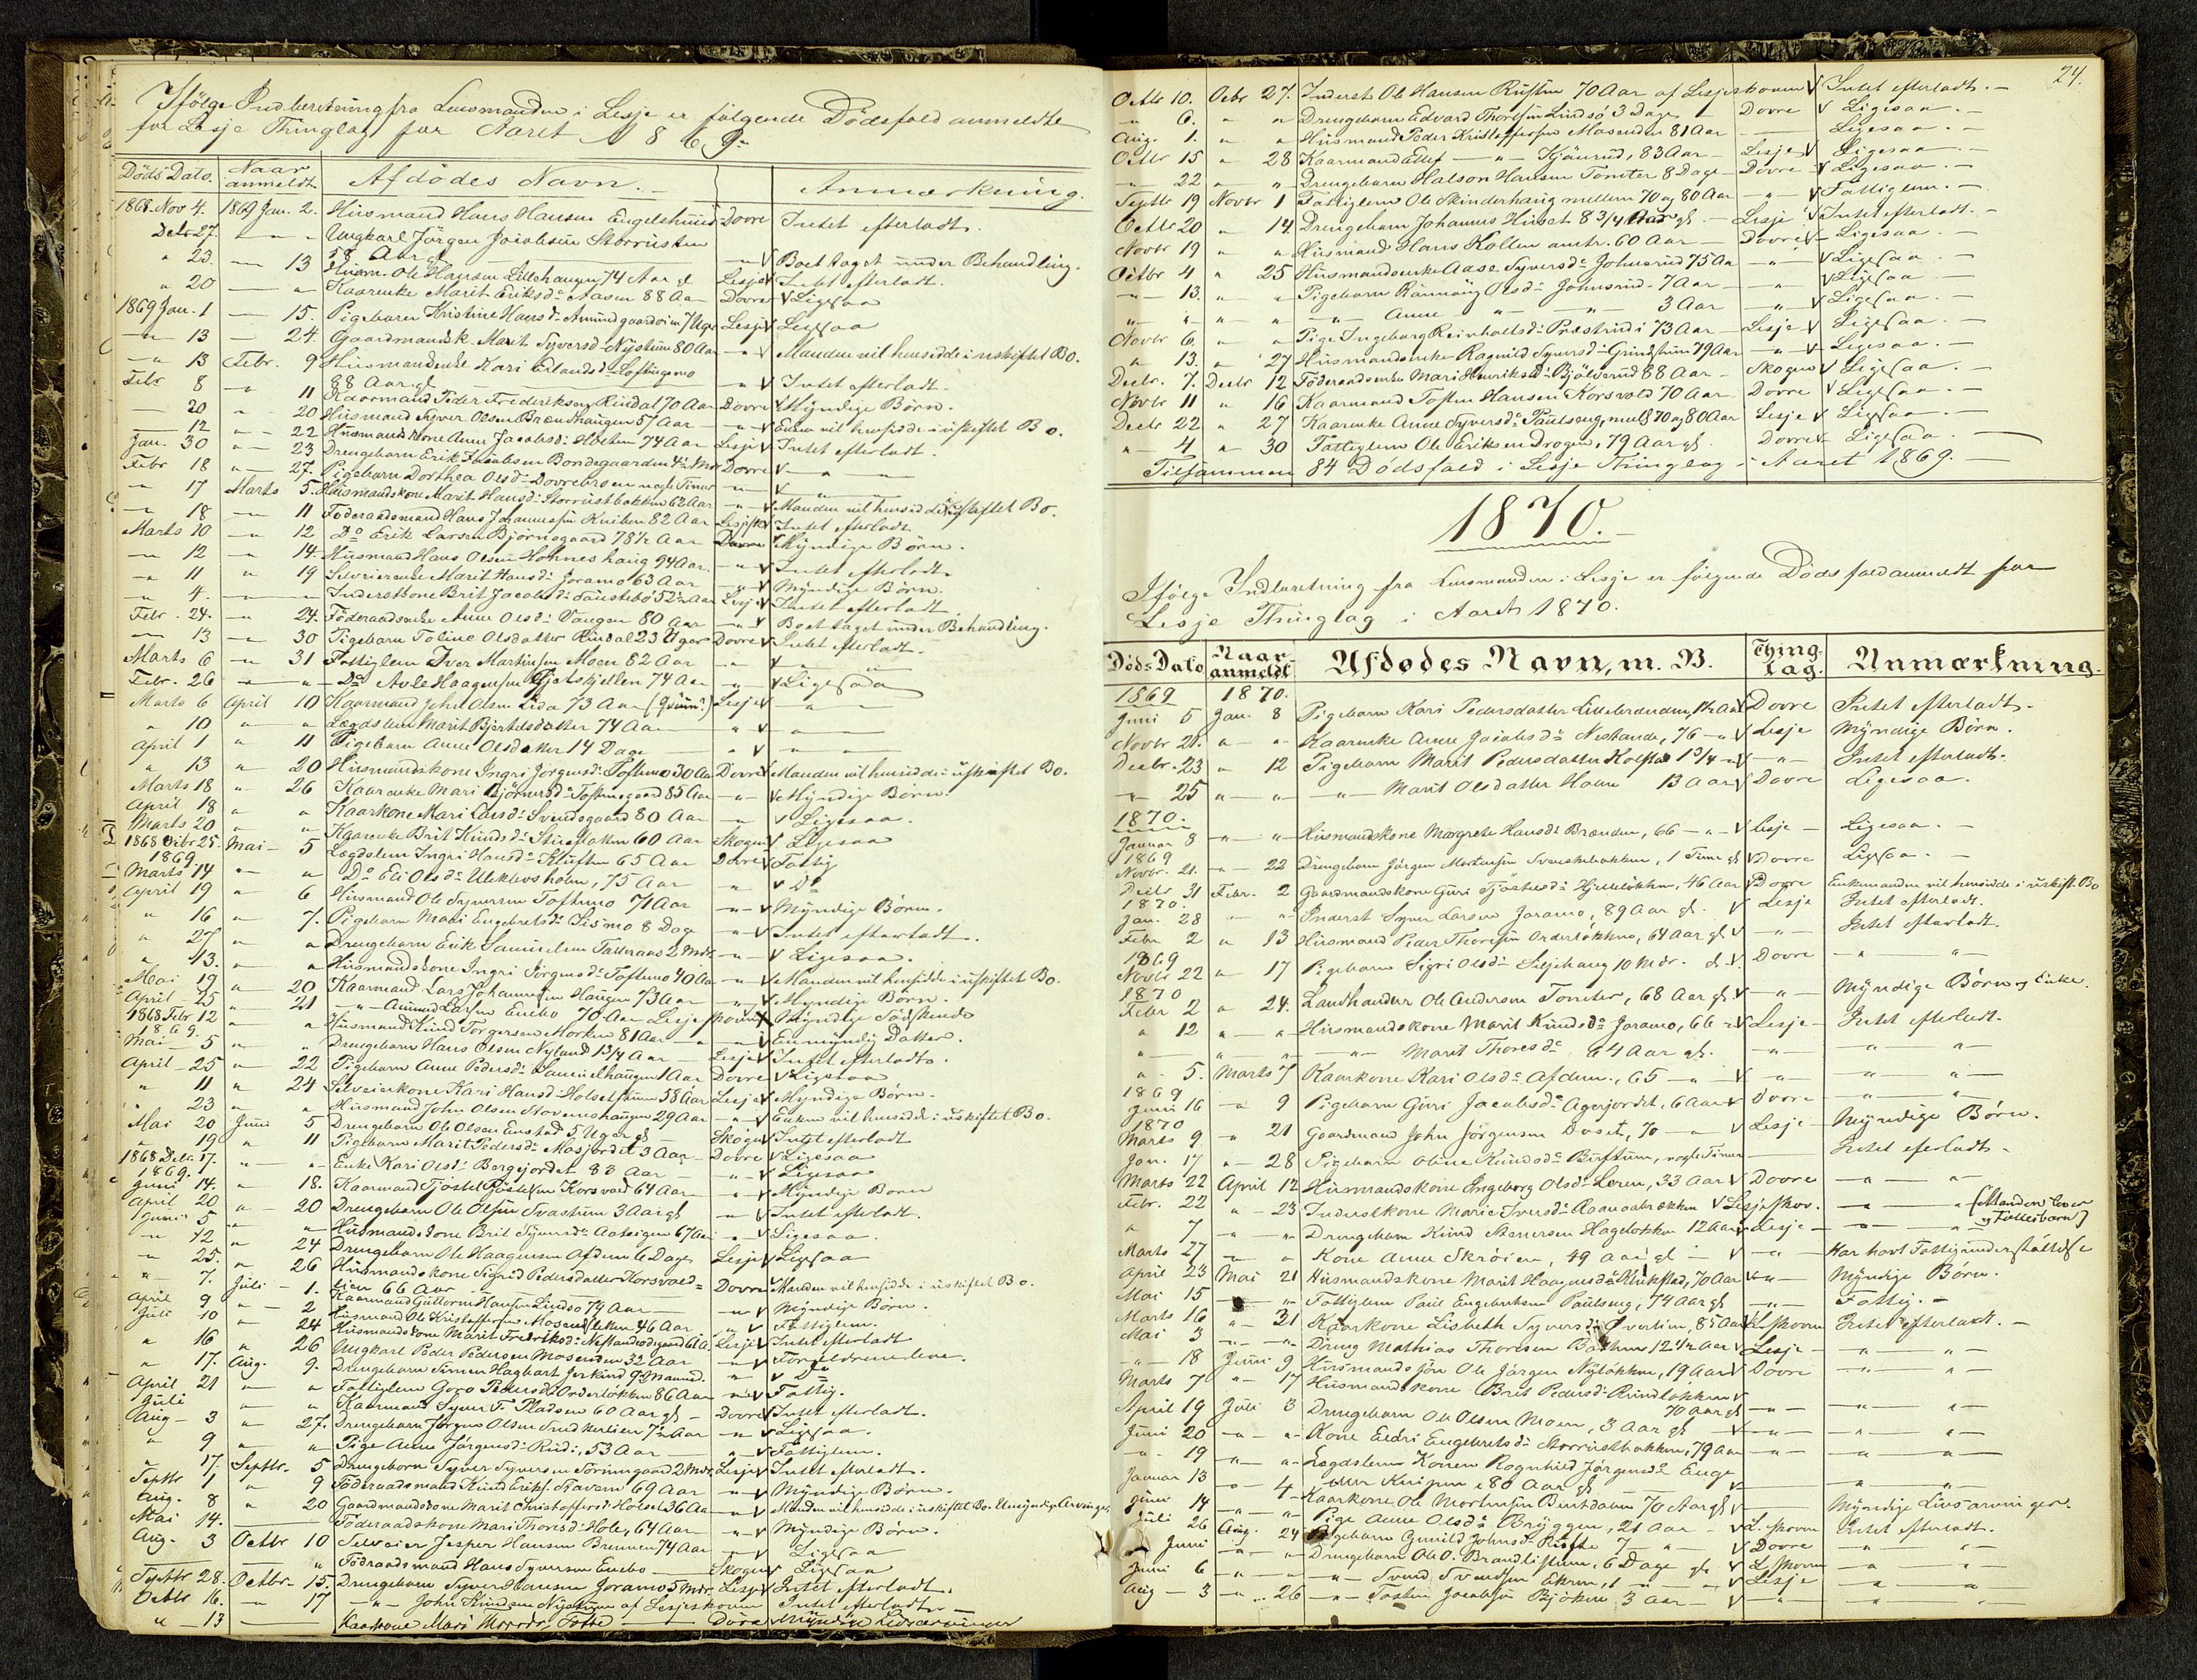 Ifölge Indberetning fra Lensmanden i Lesje er fölgende Dödsfald anmeldte
for Lesje Thinglag for Aaret 1869.
Döds Dato. Naar anmeldt Afdödes Navn. Anmærkning.
1868. Nov 4. 1869 Jan. 2. Husmand Hans Hansen Dovre Intet efterladt.
Decbr 27. " " Ungkarl Jörgen Jacobsen Storrusten
58 Aar gl V Boet taget under Behandling.
" 23. — 13 Husm. Ole Hansen Lillehaugen 74 Aar gl Lesje V Intet efterladt.
" 20 — " Kaarenke Marit Eriksd: Aasen 88 Aar Dovre V Ligesaa
1869 Jan. 1 — 15. Pigebarn Kristine Hansd: 7 Uger Lesje V Ligesaa
" 13 — 24. Gaardmandsk. Marit Syversd: Nystuen 80 Aar " V Manden vil hensidde i uskiftet Bo.
" 13 Febr. 9 Husmandenke Kari Erlandsd:
88 Aar gl " V Intet efterladt.
Febr 8 " 11 Kaarmand Peder Frederiksen Rindal 70 Aar Dovre V Myndige Börn.
— 20 " 20 Husmand Syver Olsen Brændhaugen 57 Aar " V Enken vil hensidde i uskiftet Bo.
— 12 " 22 Husmandskone Anne Jacobsd: 74 Aar Lesje V Intet efterladt.
Jan. 30 " 23 Drengebarn Erik Jacobsen Bondegaarden Dovre V "
Febr 18 " 27. Pigebarn Dorthea Olsd: nogle Timer " V "
" 17 Marts 5. Husmandskone Marit Hansd: Storrustbakken 62 Aar " V Manden vil hensidde i uskiftet Bo.
" 18 " 11 Föderaadsmand Hans Johannessen 82 Aar V Intet efterladt
Marts 10 " 12 Do Erik Larsen Bjornsgaard 78½ Aar Dovre V Myndige Börn.
" 12 " 14. Husmand Hans Olsen 94 Aar " V Intet efterladt.
" 11 " 19 Selveierenke Marit Hansd: Joramo 63 Aar " V Myndige Börn.
" 4. " " Inderstkone Brit Jacobsd: 52½ Aar Lesje V Intet efterladt
Febr. 24. " 24. Föderaadsenke Anne Olsd: Vangen 80 Aar " V Boet taget under Behandling.
" 13 " 30 Pigebarn Toline Olsdatter Rindal 23 Uger Dovre V Intet efterladt.
Marts 6 " 31 Fattiglem Iver Martinsen Moen 82 Aar " V "
Febr. 26 " " Do 74 Aar " V Ligesaa
Marts 6 April 10 Kaarmand John Olsen Lida 73 Aar Lesje V "
" 10 " " Lægdslem Marit Bjertelsdatter 74 Aar " V "
April 1 " 11 Pigebarn Anne Olsdatter 14 Dage " V "
" 13 " 20 Husmandskone Ingri Jörgensd: Toftemo 30 Aar Dovre V Manden vil hensidde i uskiftet Bo.
Marts 18 " 26 Kaarenke Mari Björnersd: Toftesgaard 85 Aar " V Myndige Börn.
April 18 " " Kaarkone Mari Larsd: Svendsgaard 80 Aar " V Ligesaa.
Marts 20 " " Kaarenke Brit Knudsd: 60 Aar Skogen V Ligesaa
1868 Octbr 25. Mai 5 Lægdslem Ingri Hansd: Kluften 65 Aar Dovre V Fattig
1869.
Marts 14 " " Do Eli Olsd: 75 Aar " V Do
April 19 " 6 Husmand Ole Syversen Toftemo 71 Aar " V Myndige Börn.
" 16 " 7. Pigebarn Mari Engebretsd: 8 Dag " V Intet efterladt.
" 27 " " Drengebarn Erik Samuelsen 2 Mdr. " V Ligesaa.
" 13. " " Husmandskone Ingri Jörgensd: Toftemo 40 Aar " V Manden vil hensidde i uskiftet Bo.
Mai 19 " 20 Kaarmand Lars Johannessen Haugen 73 Aar " V Myndige Börn.
April 25 " 21 " Amund Larsen Enebo 70 Aar Lesjeskoven V Myndige Södskende
1868 Febr 12 " " Husmand Knud Torgersen Morken 81 Aar " V En myndig Datter.
1869.
Mai 5 " " Drengebarn Hans Olsen Nylund 1¾ Aar Lesje V Intet efterladt.
April 25 " 22 Pigebarn Anne Pedersd: Samuelhaugen 1 Aar Dovre V Ligesaa
" 11 " 24 Selveierkone Kari Hansd: 58 Aar Lesje V Myndige Börn.
" 23 " " Husmand John Olsen 29 Aar " V Enken vil hensidde i uskiftet Bo.
Mai 20 Juni 5 Drengebarn Ole Olsen Enstad 5 Uger gl Skogen V Intet efterladt
" 19 " 11 Pigebarn Marit Pedersd: Mosjordet 3 Aar Dovre V Ligesaa
1868 Decbr 17. " " Enke Kari Olsd: Bergejordet 83 Aar " V Ligesaa
1869.
Juni 14. " 18. Kaarmand Tjöstel Tjöstelsen Korsvold 64 Aar " V Myndige Born
April 20 " 20 Drengebarn Ole Olsen 3 Aar gl " V Intet efterladt.
Juni 5 " " Husmandskone Brit Syversd: 67 Aar " V Ligesaa.
" 12 " 24 Drengebarn Ole Haagensen Afdem 6 Dage Lesje V Ligesaa
" 25. " 26 Husmandskone Sigrid Pedersdatter Korsvold=
" 7. Juli 1. eien 66 Aar Dovre V Manden vil hensidde i uskiftet Bo.
April 9 " 2 Kaarmand Guttorm Hansen Lindsö 74 Aar " V Myndige Börn.
Juli 10 " 24 Husmand Ole Kristoffersen 46 Aar " V Fattiglem.
" 16 " 26 Husmandskone Marit Fredriksd: Lesje V Intet efterladt
" 17. Aug. 9. Ungkarl Peder Pedersen Mosenden 32 Aar " V
April 21 " " Drengebarn Simen Hagbart Jerkind 9 Maaned. " V Do
Juli " " Fattiglem Goro Pedersd: 86 Aar " V Fattig.
Aug. 3 " 27. Kaarmand Syver T. Pladsen 60 Aar gl Dovre V Intet efterladt.
" 9 " " Drengebarn Jörgen Olsen 7½ Aar " V Ligesaa.
Pige Anne Jörgensd: Rudi, 53 Aar " V Fattiglem.
" 17. Septbr. 5 Drengebarn Syver Syversen 2 Mdr. Lesje V Intet efterladt.
Septbr 1 " 9 Föderaadsmand Knud Eriks. Stavem 69 Aar " V Myndige Börn.
Aug. 8 " 20 Gaardmandskone Marit Christoffersd: Holset 36 Aar " V Manden vil hensidde i uskiftet Bo. Umyndige Arvinger
Mai 14. Föderaadskone Mari Thoresd: Hole, 64 Aar " V Myndige Börn.
Aug. 3 Octbr 10 Selveier Jesper Hansen Brennen 74 Aar " V Ligesaa
" " Föderaadsmand Hans Syversen Enebo Skogen V Ligesaa
Septbr 28. Octbr. 15. Drengebarn Syver Hansen Joramo 5 Mdr. Lesje V Intet efterladt.
Octbr 16. " 17 " John Knudsen Nystuen af Lesjeskoven Intet efterladt.
" 13 — Kaarkone Mari Dovre V Myndige Livsarvinger
24.
Octbr 10. Octbr 27. Inderst Ole Hansen Rusten 70 Aar af Lesjeskoven V Intet efterladt.
" 6. " " Drengebarn Edvard Thoresen Lindsö 3 Dage Dovre V Ligesaa.
Aug. 1. " " Husmand Peder Kristoffersen Mosenden 81 Aar — Ligesaa.
Octbr 15 " 28 Kaarmand Ellef — " — Kjönrud, 83 Aar Lesje V Ligesaa.
" 22 " " Drengebarn Halvor Hansen Tomter 8 Dage Dovre V Ligesaa.
Septbr 19 Novbr 1 Fattiglem Ole Skinderhaug mellem 70 og 80 Aar " V Fattiglem.
Octbr 20 " 14. Drengebarn Johannes 8¾ gl. Lesje V Intet efterladt.
Novbr 19 " " Husmand Hans Kollen omtr. 60 Aar Dovre V Ligesaa.
Octbr 4 " 25 Husmandsenke Aase Syversd: Johnsrud 75 Aar " V Ligesaa
" 13. " " Pigebarn Rönnaug Olsd: Johnsrud 7 Aar " V Ligesaa
" " " " " Anne " " 3 Aar " V Ligesaa.
Novbr 6. " " Pige Ingeborg Reinholtsd: Præstrud 73 Aar Lesje V Ligesaa.
" 13. " 27 Husmandsenke Ragnild Syversd: Grindstuen 79 Aar " V Ligesaa.
Decbr. 7. Decbr 12 Föderaadsenke Mari Henriksd: Bjölverud 88 Aar Skogen V Ligesaa.
Novbr 11 " 16 Kaarmand Tosten Hansen Korsvold 70 Aar Dovre V Ligesaa.
Decbr 22 " 27 Kaarenke Anne Syversd: Paulseng, mell 70 og 80 Aar Lesje V Ligesaa
" 4 " 30 Fattiglem Ole Eriksen Drogen, 79 Aar gl. Dovre V Ligesaa.
Tilsammen 84 Dödsfald i Lesje Thinglag i Aaret 1869.
1870.
Ifölge Indberetning fra Lensmanden i Lesje er fölgende Dödsfald anmeldt for
Lesje Thinglag i Aaret 1870.
Döds-Dato Naar anmeldt Afdødes Navn, m. V. Thing-lag. Anmærkning.
1869 1870.
Juni 5 Jan. 8 Pigebarn Kari Pedersdatter 1½ Aar V Dovre Intet efterladt.
Novbr 21. " " Kaarenke Anne Jacobsd: Nestande, 76 " V Lesje Myndige Börn.
Decbr. 23 " 12 Pigebarn Marit Pedersdatter Kolstad 1¾ " V " Intet efterladt.
" 25 " " " Marit Olsdatter Holen 13 Aar V Dovre Ligesaa.
1870.
Januar 8 " " Husmandskone Margrete Hansd: Brænden, 66 " V Lesje Ligesaa.
1869
Novbr. 21. " 22 Drengebarn Jörgen Mortensen Svenskebakken, 1 Time gl V Dovre Ligesaa.
Decbr 31 Febr. 2 Gaardmandskone Guri Tjöstelsd: Hjelleløkken, 46 Aar V Dovre Enkemanden vil hensidde i uskift. Bo
1870.
Jan. 28 " " Inderst Syver Larsen Joramo, 89 Aar gl. V Lesje Intet efterladt.
Febr 2 " 13 Husmand Peder Thoresen 64 Aar gl V " Intet efterladt.
1869
Novbr 22 " 17 Pigebarn Sigri Olsd: Siljehaug 10 Mdr. gl V. Dovre " "
1870
Febr 2 " 24. Landhandler Ole Andersen Tomter, 68 Aar gl V " Myndige Börn og Enke.
" 12 " " Husmandskone Marit Knudsd: Joramo, 66 " V Lesje Intet efterladt.
" " " " " Marit Thoresd: 64 Aar gl. " " "
" 5. Marts 7 Kaarkone Kari Olsd: Afdem, 65 " V " " "
1869
Juni 16 " 9 Pigebarn Guri Jacobsd: Agerjordet, 6 Aar V Dovre " "
1870
Marts 9. " 21 Gaardmand John Jörgensen Duset, 70 " V Lesje Myndige Börn.
Jan. 17 " 28 Pigebarn Oline Knudsd: nogle Timer Intet efterladt.
Marts 22 April 12 Husmandskone Ingeborg Olsd: Leren, 33 Aar V Dovre " "
Febr. 22 " 23 Inderstkone Marie Iversd: V Lesjeskov. " " (Manden lever
og Fællesbarn)
" 7 " " Drengebarn Knud 12 Aar V Lesje " "
Marts 27 " " Kone Anne Skröien, 49 Aar gl V " Har havt Fattigunderstöttelse
April 23 Mai 21 Husmandskone Marit Haagensd: 70 Aar V " Myndige Börn.
Mai 15 " Fattiglem Paul Engebretsen Paulseng, 74 Aar gl " Fattig.
Marts 16 " 31 Kaarkone Lisbeth Syversd: 85 Aar V L. skoven Intet efterladt.
Mai 3 " " Dreng Mathias Thoresen 12½ Aar V Lesje " "
" 18 Juni 9 Husmandssön Ole Jörgen Nyløkken, 19 Aar V Dovre " "
Marts 7 " 17 Husmandskone Brit Pedersd: Rindløkken V
70 Aar gl " " "
April 19 Juli 3 Drengebarn Ole Olsen Moen, 3 Aar gl V " " "
Juni 20 " " Kone Eldri Engebretsd: Storrustbakken, 79 Aar " " "
" 19 " " Lægdslem Konen Ragnhild Jörgensd: Enge
eller Knipen i 80 Aar gl V " " "
Januar 13 " 4 Kaarkone Ole Mortensen 70 Aar gl V Myndige Livsarvinger.
Juni 14 " " Pige Anne Olsd: Bryggen, 21 Aar V L. skoven Intet efterladt.
Juli 26 Aug. 24 Pigebarn Gunild Johnsd: 7 " V Dovre " "
" Juni " " Drengebarn Ole O. Brandlistuen, 6 Dage gl V L. skoven " "
Juni 6 " " " Svend Svendsen Ekren, 1 " " V Lesje " "
Aug 3 " 26 " Tosten Jacobsen Bjökne 3 Aar V " " "